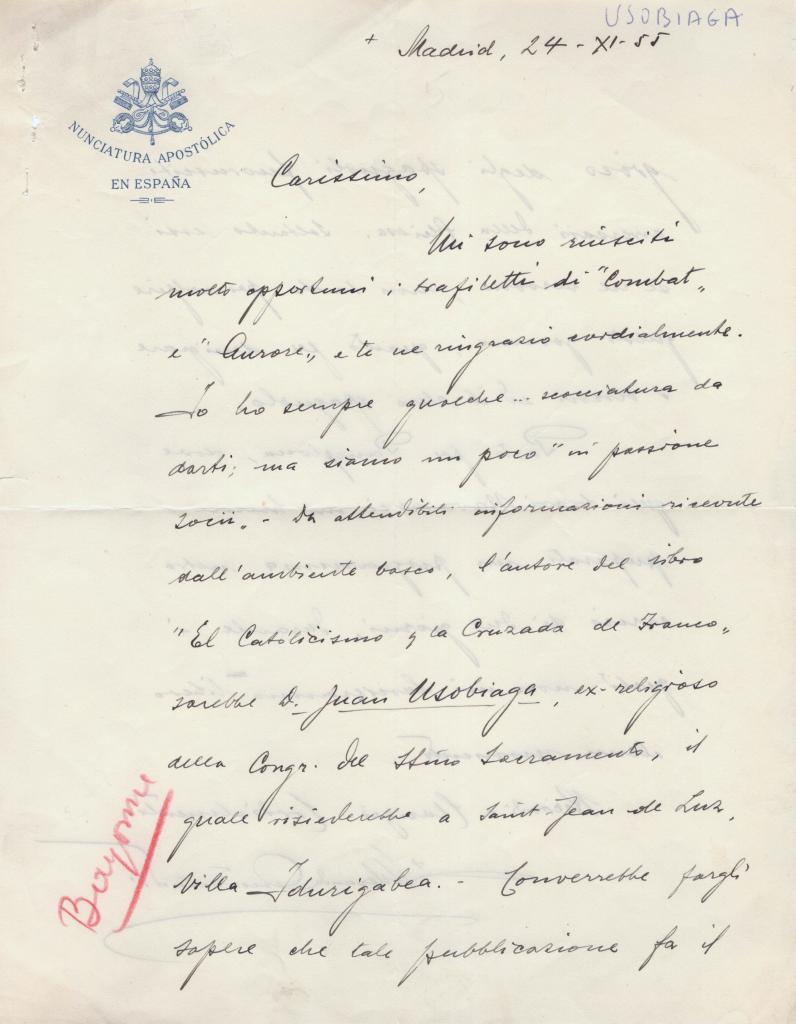 USOBIAGA
+ Madrid, 24 - XI - 55
NUNCIATURA APOSTÓLICA
EN ESPAÑA
Carissimo,
Mi sono riusciti
molto opportuni i trafiletti di "Combat"
e "Aurore" e te ne ringrazio cordialmente.
Io ho sempre qualche... scocciatura da
darti; ma siamo un poco "in passione
socii". - Da attendibili informazioni ricevute
dall'ambiente basco, l'autore del libro
"El Catolicismo y la Cruzada de Franco"
sarebbe D. Juan Usobiaga, ex-religioso
della Congr. del SSmo Sacramento, il
quale risiederebbe a Saint-Jean de Luz,
Villa Idurigabea. - Converrebbe fargli
sapere che tale pubblicazione fa il
Bayonne